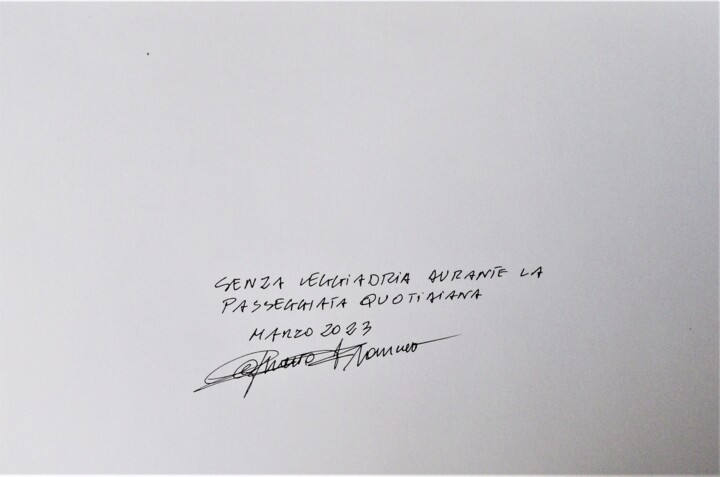 SENZA LEGGIADRIA DURANTE LA
PASSEGGIATA QUOTIDIANA
MARZO 2023